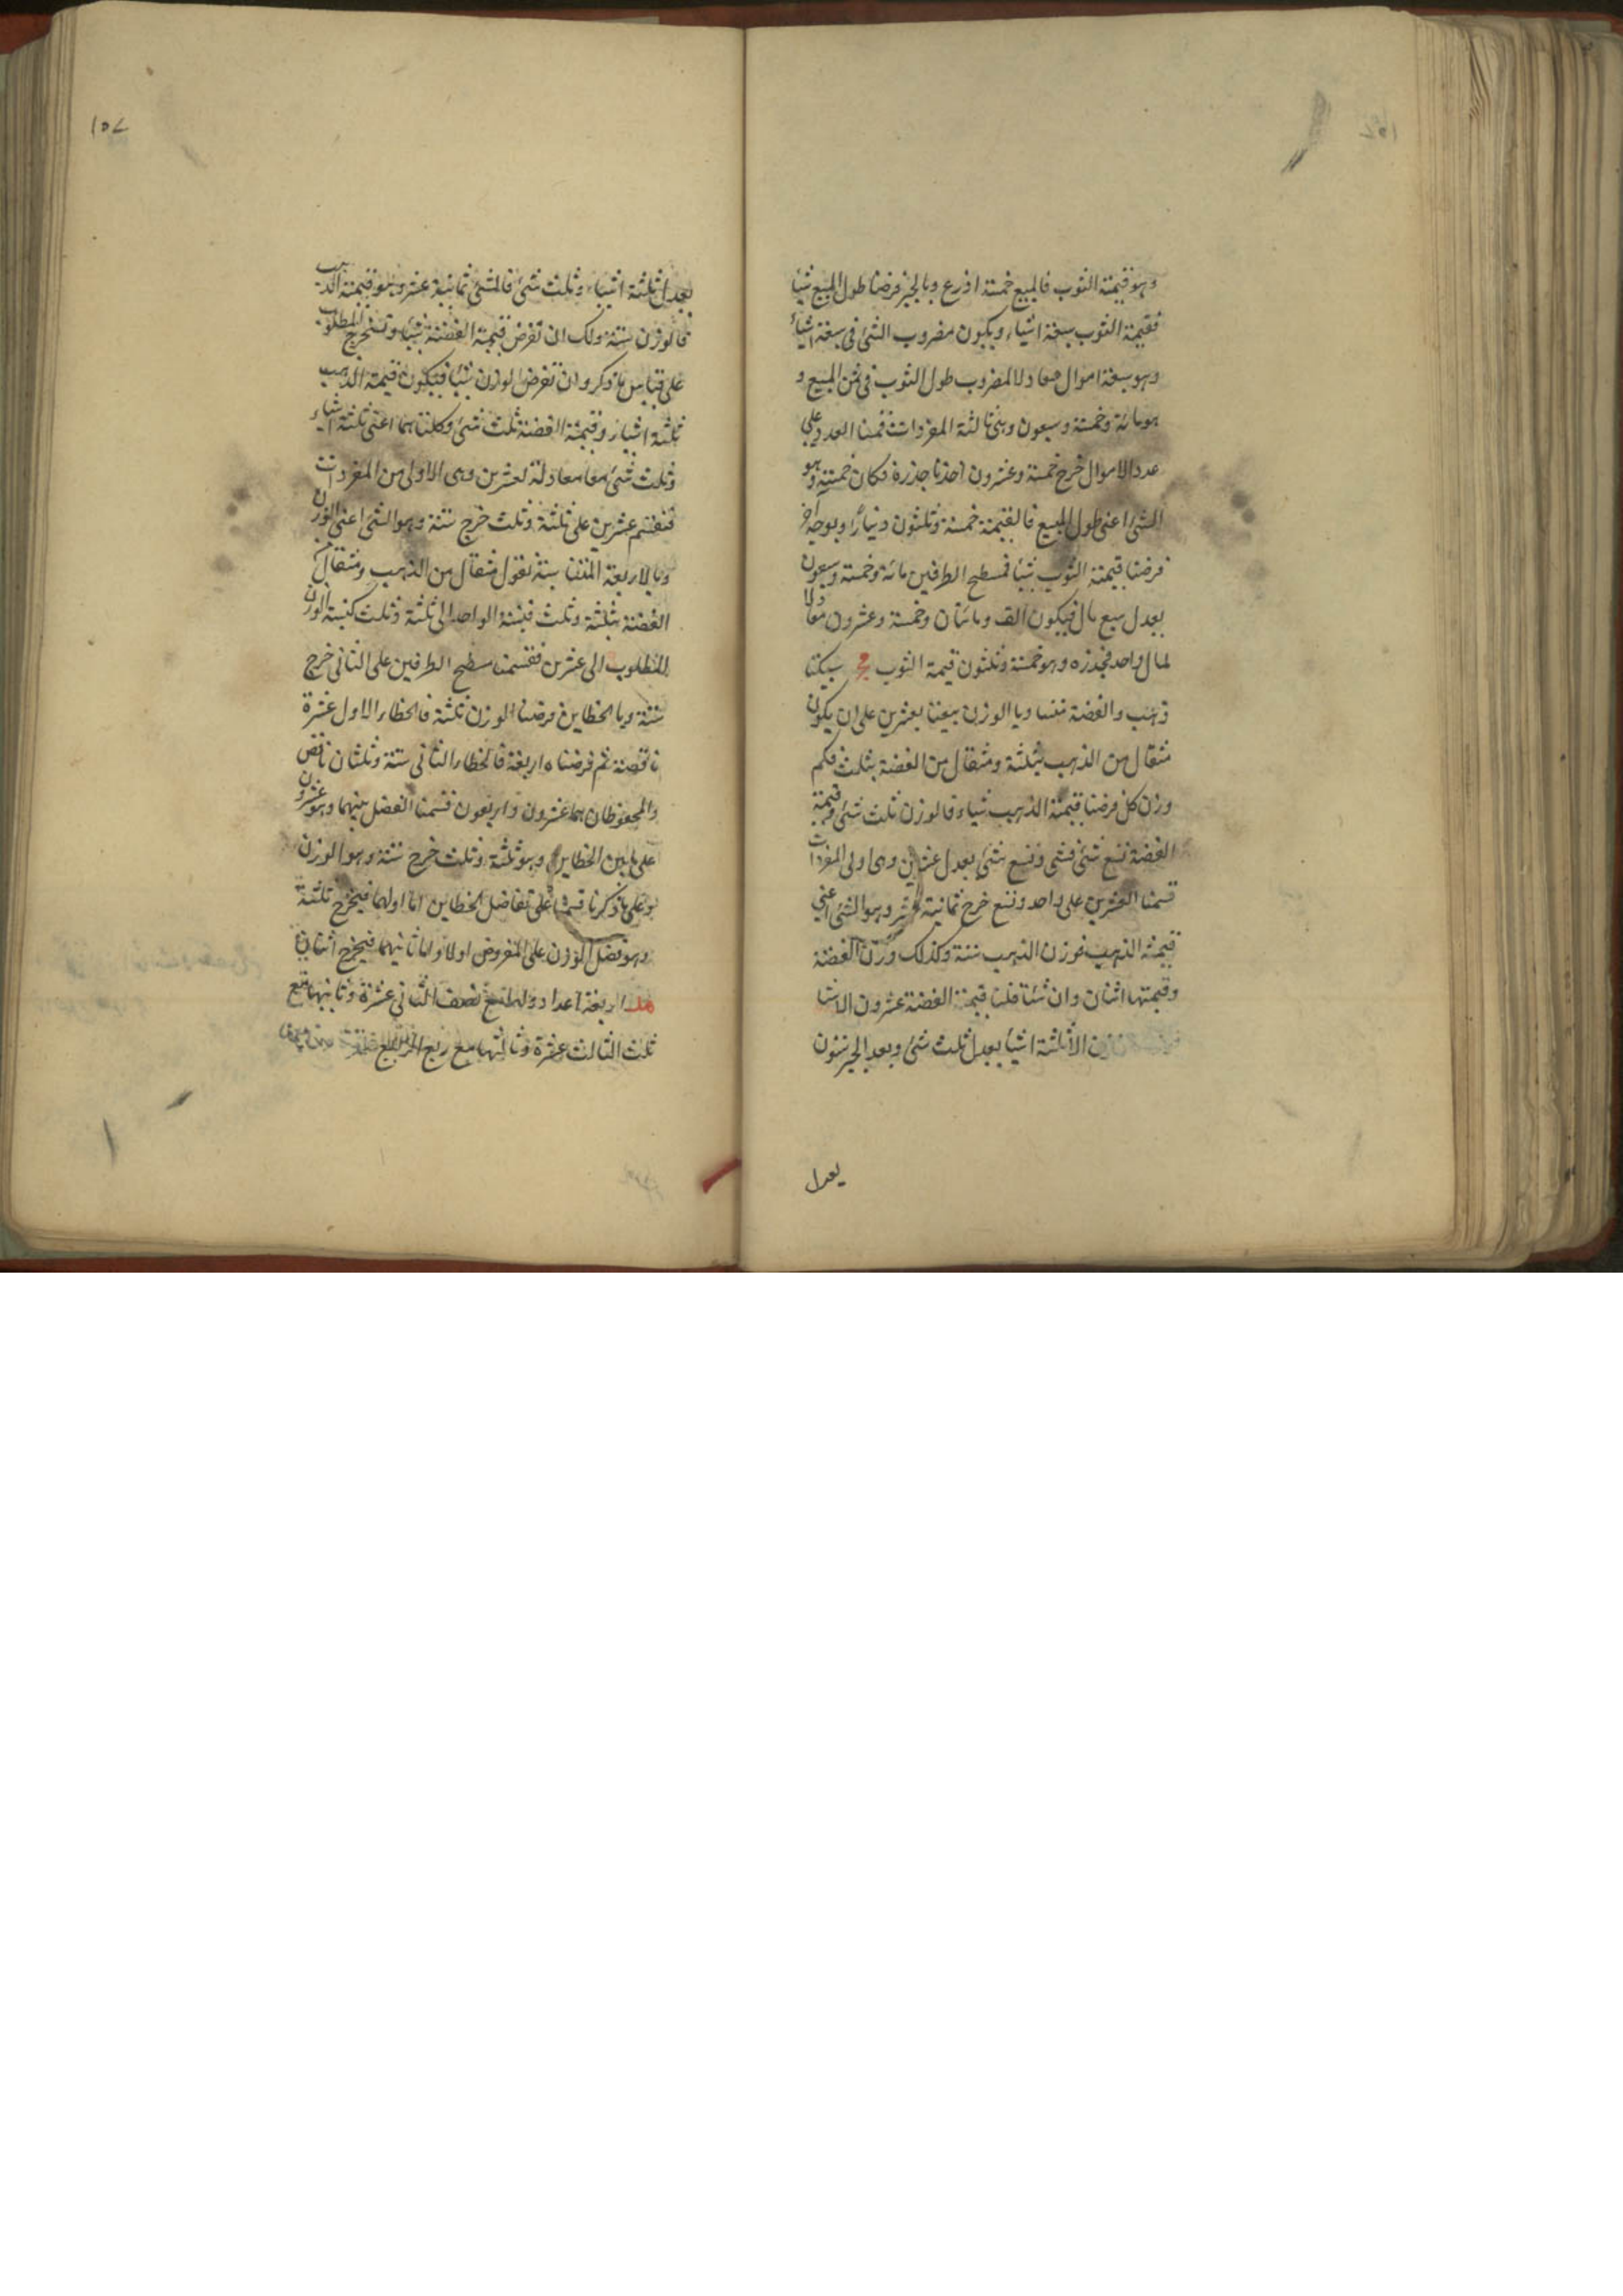 وهو قيمة الثوب فالمبيع خمسة اذرع وبالجبر فرضنا طول المبيع شيئا
فقيمة الثوب سبعة اشياء ويكون مضروب الشئ فى سبعة اشياء
وهو سبعة اموال معادلا لمضروب طول الثوب فى ثمن المبيع و
هو مائة وخمسة وسبعون وهى ثالثة المفردات قسمنا العدد على
عدد الاموال خرج خمسة وعشرون اخذنا جذره فكان خمسة وهو
الشئ اعنى طول المبيع فالقيمة خمسة وثلثون دينارا وبوجه آخر
فرضنا قيمة الثوب شيئا فمسطح الطرفين مائة وخمسة وسبعون
يعدل سبع مال فيكون الف ومائتان وخمسة وعشرون معادلا
لمال واحد فجذره وهو خمسة وثلثون قيمة الثوب سبيكتا
ذهب والفضة متساويا الوزن بيعتا بعشرين على ان يكون
مثقال من الذهب بثلثة ومثقال من الفضة بثلث فكم
وزن كل فرضنا قيمة الذهب شياء فالوزن ثلث شئ وقيمة
الفضة تسع شئ فشئ وتسع شئ يعدل عشرين وهى اولى المفردات
قسمنا العشرين على واحد وتسع خرج ثمانية عشر وهو الشئ اعنى
قيمة الذهب فوزن الذهب ستة وكذلك وزن الفضة
وقيمتها اثنان وان شئنا قلنا قيمة الفضة عشرون الا شيئا
الا ثلثة اشيا يعدل ثلث شئ وبعد الجبر ستون
يعدل
١٥٧
يعدل ثلثة اشياء وثلث شئ فالشئ ثمانية عشر وهو قيمة الذهب
فالوزن ستة ولك ان تفرض قيمة الفضة شيئا وتستخرج المطلوب
على قياس ما ذكر وان تفرض الوزن شيئا فيكون قيمة الذهب
ثلثة اشياء وقيمة الفضة ثلث شئ وكلتاهما اعنى ثلثة اشياء
وثلث شئ معا معادلة لعشرين وهى الاولى من المفردات
فنقسم عشرين على ثلثة وثلث خرج ستة وهو الشئ اعنى الوزن
وبالاربعة المتناسبة نقول مثقال من الذهب ومثقال
الفضة بثلثة وثلث فنسبة الواحد الى ثلثة وثلث كنسبة الوزن
المطلوب الى عشرين فقسمنا مسطح الطرفين على الثانى خرج
ستة وبالخطاين فرضنا الوزن ثلثة فالخطاء الاول عشرة
ناقصة ثم فرضناه اربعة فالخطاء الثانى ستة وثلثان ناقص
والمحفوظان هما عشرون واربعون قسمنا الفضل بينهما وهو عشرون
على ما بين الخطاين وهو ثلثة وثلث خرج ستة وهو الوزن
وعلى ما ذكرنا قسمنا على تفاضل الخطاين اما اولهما فيخرج ثلثة
وهو فضل الوزن على المفروض اولا واما ثانيهما فيخرج اثنان
اربعة اعداد اولها مع نصف الثانى عشرة وثانيها مع
ثلث الثالث عشرة وثالثها مع ربع الرابع